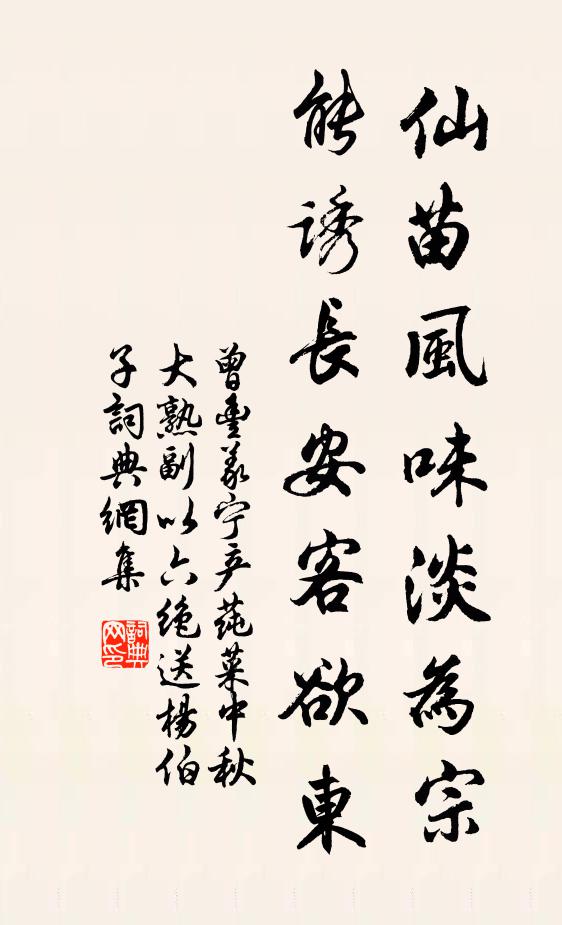 仙苗風味淡為宗
能誘長安客欲東
曾豐義宁产莼菜中秋
大熟副以六絶送楊伯
子詞典網集
詞典
网印